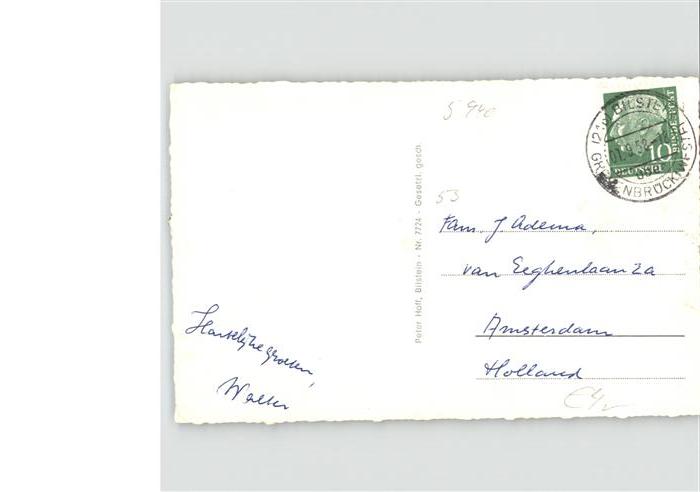 Hartelijke groeten,
Walter
Peter Hoff, Bilstein - Nr. 7724 - Gesetzl. gesch.
53
Fam. J Adema,
van Eeghenlaan 2a
Amsterdam
Holland
BILSTE
GREVENBRÜCK
10
DEUTSCHE
BUNDESPOST